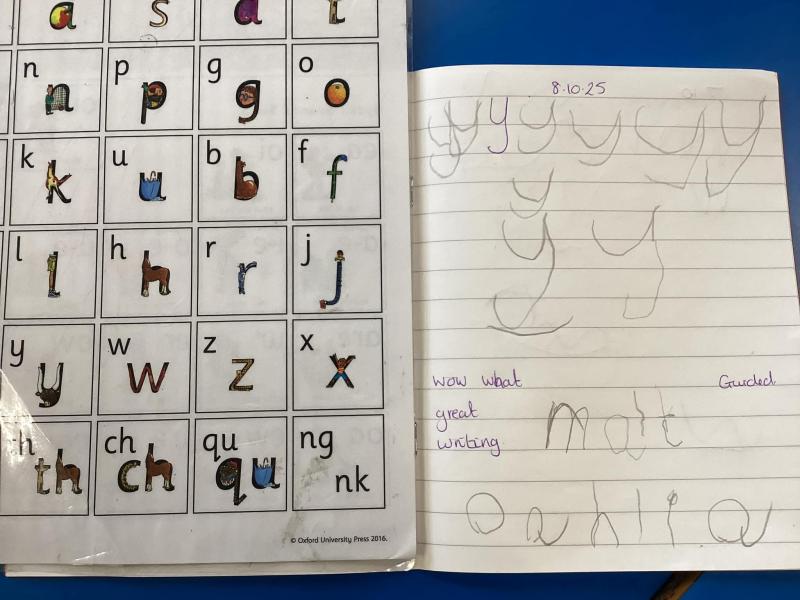 a s t
n p g o
n p g o
k u b f
k u b f
l h r j
l h r j
y w z x
y w z x
th ch qu ng
th ch qu nk
© Oxford University Press 2016.
8.10.25
y y y y y y y
y
y y
wow what
great
writing
Guided